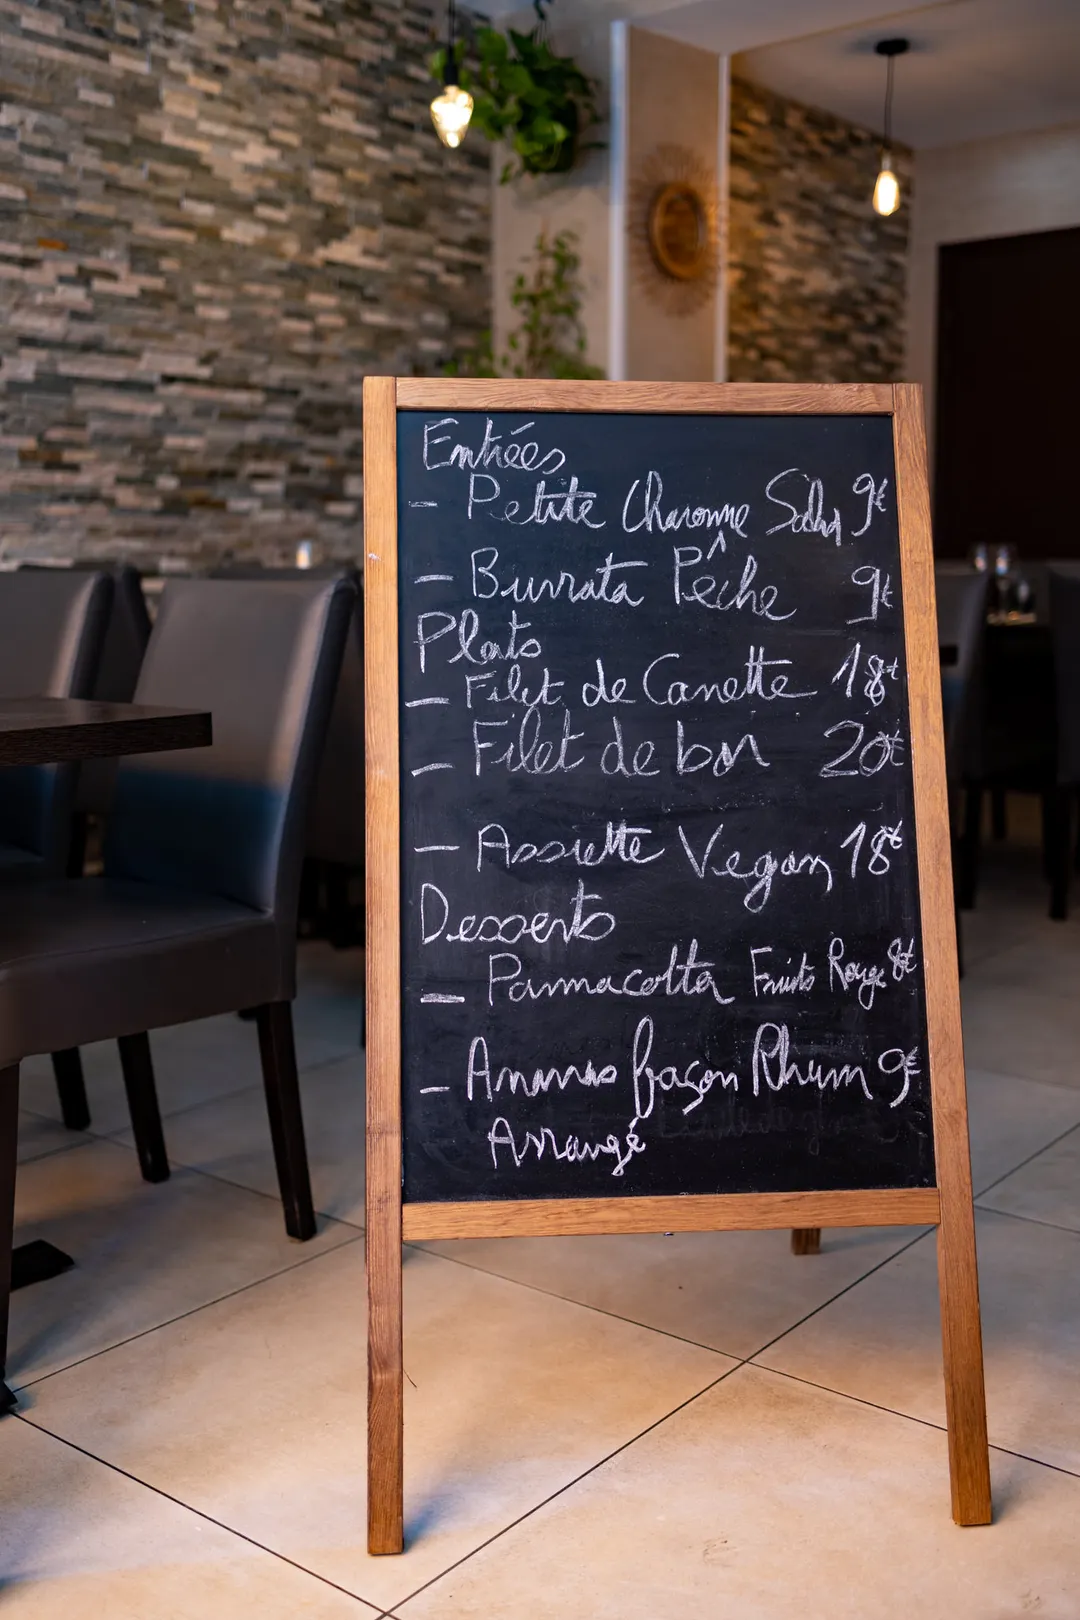 Entrées
- Petite Charonne 9€
- Burrata Pêche 9€
Plats
- Filet de Canette 18€
- Filet de bar 20€
- Assiette Vegan 18€
Desserts
- Pannacotta Fruits Rouge 8€
- Ananas façon Rhum 9€
Arrangé